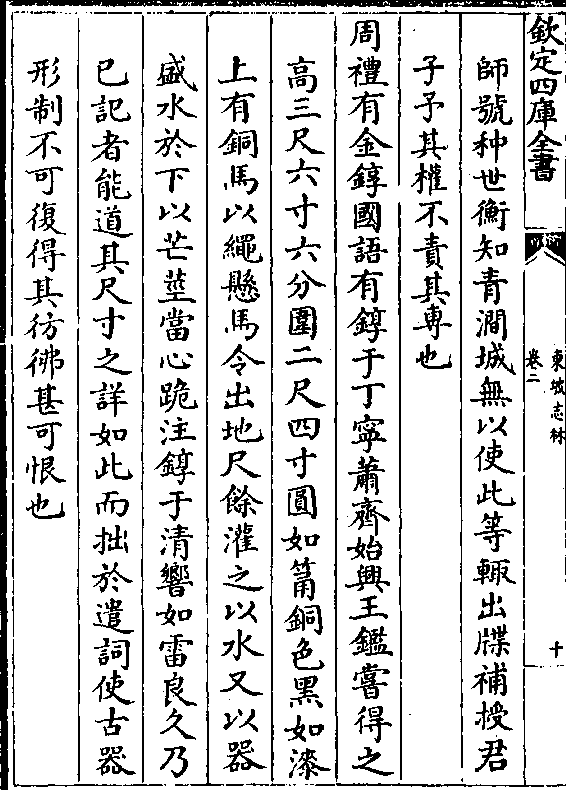 欽定四庫全書
東坡志林
卷二
十
師號种世衡知青澗城無以使此等輙出牒補授君
子予其權不責其專也
周禮有金錞國語有錞于丁寧蕭齊始興王鑑嘗得之
高三尺六寸六分圍二尺四寸圓如筩銅色黑如漆
上有銅馬以繩懸馬令出地尺餘灌之以水又以器
盛水於下以芒莖當心跪注錞于清響如雷良久乃
已記者能道其尺寸之詳如此而拙於遣詞使古器
形制不可復得其彷彿甚可恨也